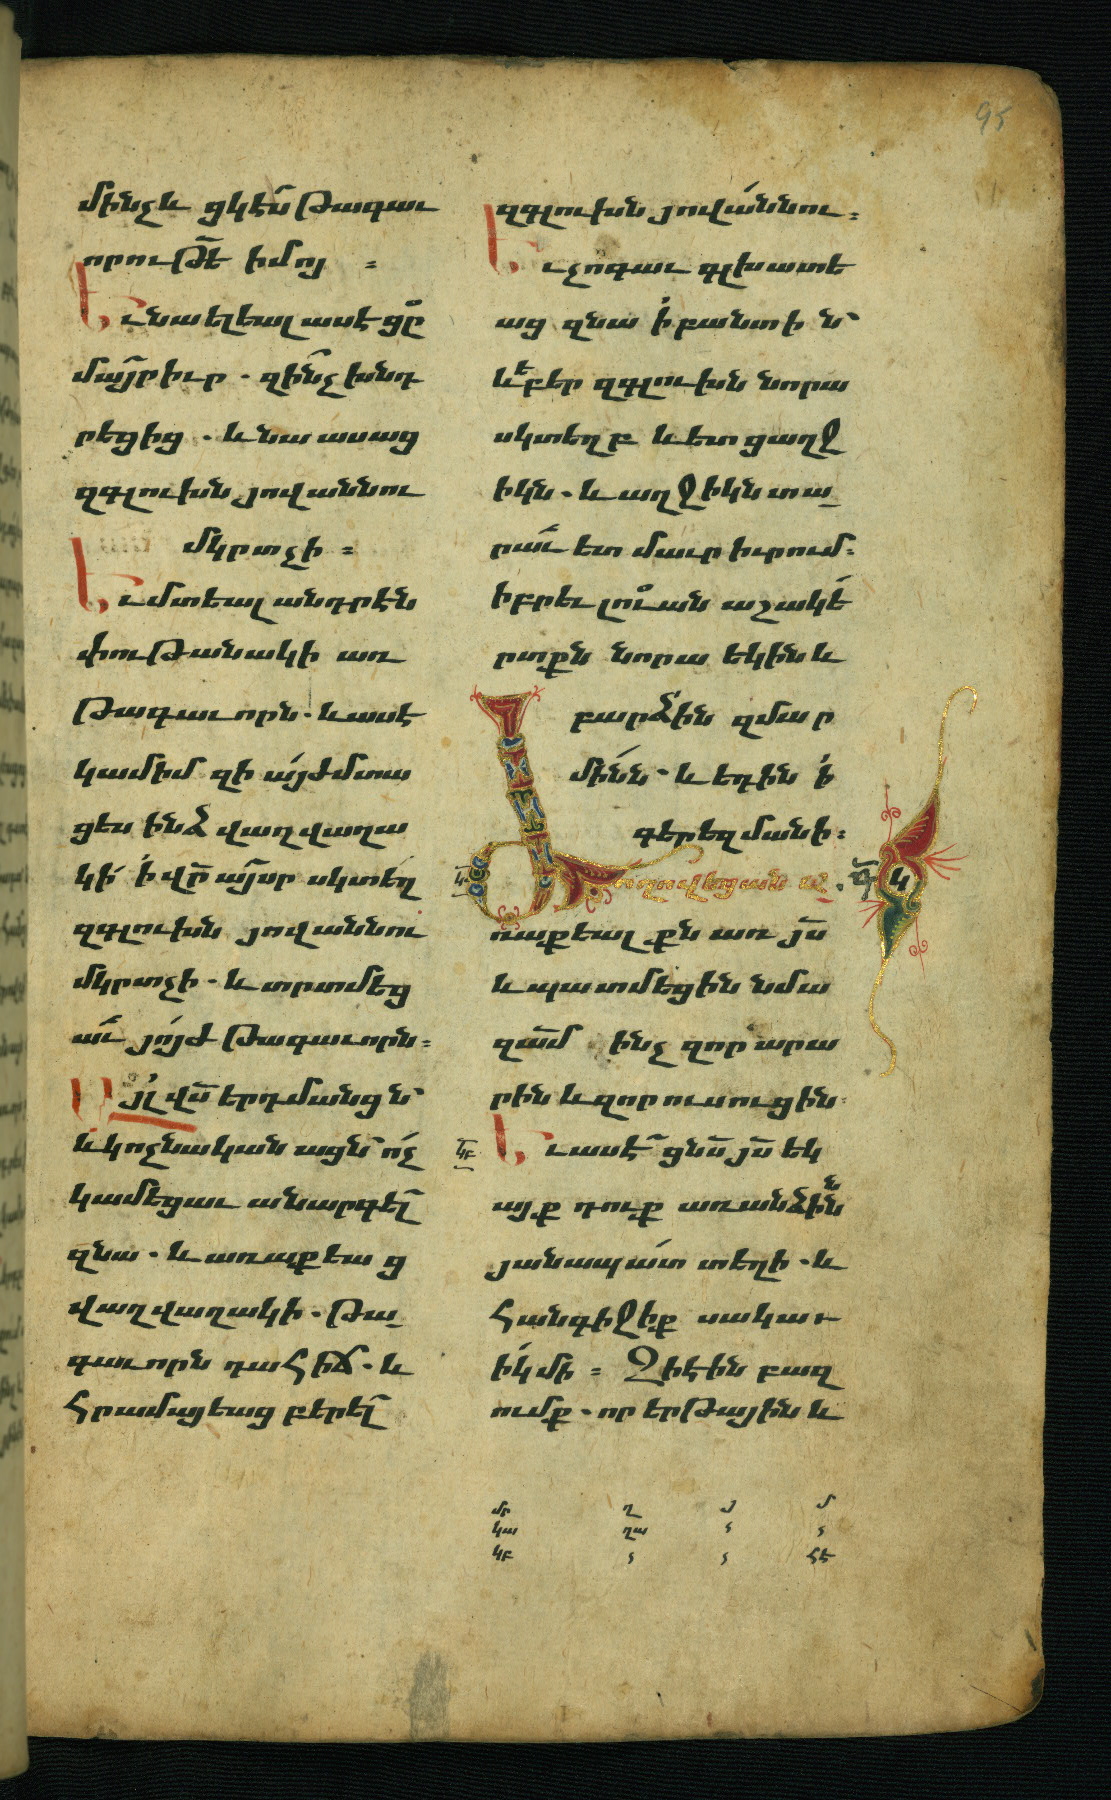 95
մինչև ցկէս̃ թագաւ
որութ̃ե իմոյ ։
Եւ նա ելեալ ասէ ցը
մայ̃ր իւր . զի՞նչ խնդ
րեցից . և նա ասաց
զգլուխն յովաննու
մկրտչի ։
Եւ մտեալ անդրէն
փութանակի առ
թագաւորն . և ասէ
կամիմ զի այժմ տա
ցես ինձ վաղվաղա
կի ի վր̃ այսր սկտեղ
զգլուխն յովաննու
մկրտչի . և տրտմեց
աւ̃ յոյժ թագաւորն ։
Այլ վս̃ երդմանցն
և կոչնականացն ոչ
կամեցաւ անարգել
զնա . և առաքեաց
վաղվաղակի . թա
գաւորն դահիճ . և
հրամայեաց բերել
զգլուխն յովաննու ։
Եւ չոգաւ գլխատե
աց զնա ի բանտի ն
և եբեր զգլուխն նորա
սկտեղբ և ետ ցաղջ
իկն . և աղջիկն տա
րաւ̃ ետ մաւր իւրում ։
իբրեւ լուան աշակե
րտքն նորա եկին և
բարձին զմար
մինն . և եդին ի
գերեզմանի ։
կա Ժողովեցան աշ̃ . կ
առաքեալքն առ յս̃
և պատմեցին նմա
զամ̃ ինչ զոր արա
րին և զոր ուսուցին
կբ Եւ ասէ ցնս̃ յս̃ եկ
այք դուք առանձինն
յանապատ տեղի . և
հանգիջիք սակաւ
իկ մի ։ Զի էին բազ
ումք . որ երթային և
մր ղ մ
կա ղա
կբ հե